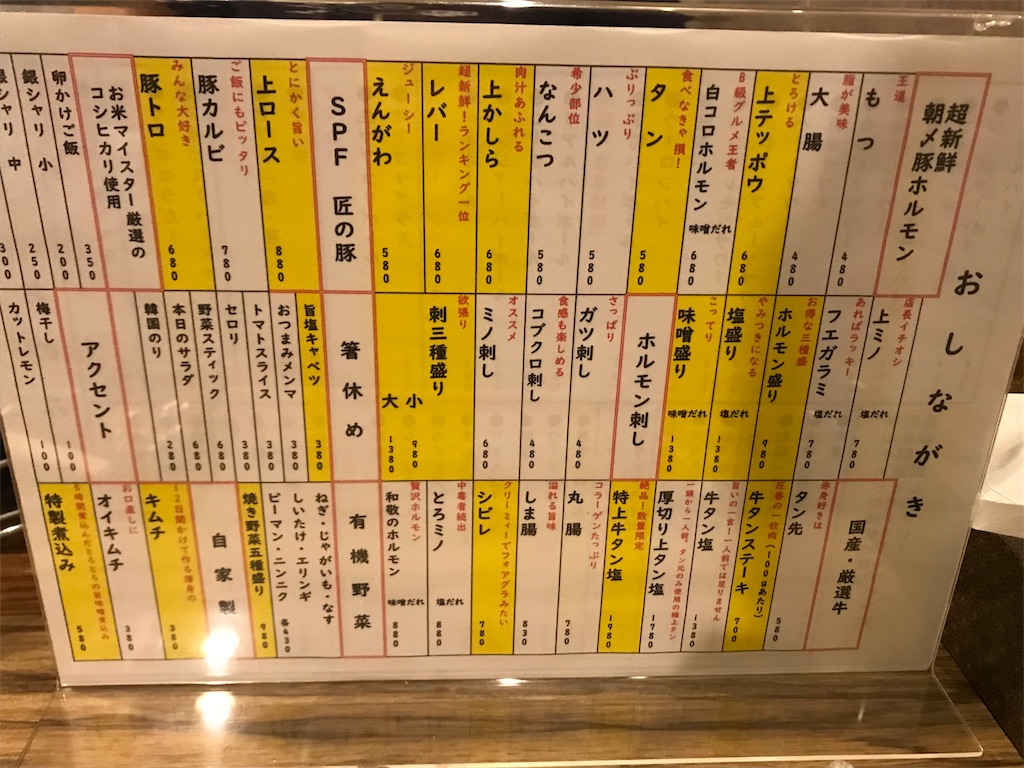 おしながき
超新鮮
朝〆豚ホルモン
王道
もつ
480
脂が美味
大腸
480
とろける
上テッポウ
680
B級グルメ王者
白コロホルモン
味噌だれ
680
食べなきゃ損!
タン
580
ぷりっぷり
ハツ
580
希少部位
なんこつ
580
肉汁あふれる
上かしら
680
超新鮮!ランキング一位
レバー
680
ジューシー
えんがわ
580
SPF 匠の豚
とにかく旨い
上ロース
880
ご飯にもピッタリ
豚カルビ
780
みんな大好き
豚トロ
680
お米マイスター厳選の
コシヒカリ使用
卵かけご飯
350
銀シャリ 小
200
銀シャリ 中
250
銀シャリ
300
店長イチオシ
上ミノ
塩だれ
780
あればラッキー
フエガラミ
塩だれ
780
お得な三種盛
ホルモン盛り
980
やみつきになる
塩盛り
塩だれ
1380
こってり
味噌盛り
味噌だれ
1380
ホルモン刺し
さっぱり
ガツ刺し
480
食感も楽しめる
コブクロ刺し
480
オススメ
ミノ刺し
680
欲張り
刺三種盛り
小 980
大 1380
箸休め
旨塩キャベツ
380
おつまみメンマ
380
トマトスライス
380
セロリ
380
野菜スティック
680
本日のサラダ
680
韓国のり
280
アクセント
梅干し
100
カットレモン
100
国産・厳選牛
赤身好きは
タン先
580
圧巻の一枚肉
牛タンステーキ
(100gあたり)
700
旨いの一言!一人前では足りません
牛タン塩
1380
一頭から一人前。タン元のみ使用の極上タン
厚切り上タン塩
1780
絶品!数量限定
特上牛タン塩
1980
コラーゲンたっぷり
丸腸
780
溢れる旨味
しま腸
830
クリーミィーでフォアグラみたい
シビレ
780
中毒者続出
とろミノ
塩だれ
880
贅沢ホルモン
和敬のホルモン
味噌だれ
880
有機野菜
ねぎ・じゃがいも・なす
しいたけ・エリンギ
ピーマン・ニンニク
各430
焼き野菜五種盛り
980
自家製
12日間かけて作る渾身の
キムチ
380
お口直しに
オイキムチ
380
5時間煮込んだとろとろの旨味噌煮込み
特製煮込み
580